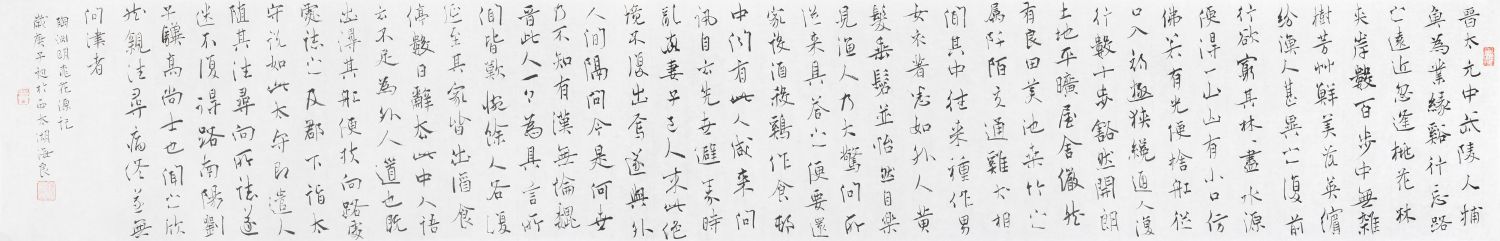 晋太元中武陵人捕
魚為業緣谿行忘路
之遠近忽逢桃花林
夾岸數百步中無雜
樹芳艸鮮美落英繽
紛漁人甚異之復前
行欲窮其林、盡水源
便得一山山有小口仿
佛若有光便捨船從
口入初極狹纔通人復
行數十步豁然開朗
土地平曠屋舍儼然
有良田美池桑竹之
屬阡陌交通雞犬相
聞其中往来種作男
女衣著悉如外人黄
髮垂髫並怡然自樂
見漁人乃大驚問所
從来具答之便要還
家設酒殺鷄作食邨
中聞有此人咸来問
訊自云先世避秦時
亂率妻子邑人来此絶
境不復出焉遂與外
人間隔問今是何世
乃不知有漢無論魏
晋此人一一為具言所
聞皆歎惋餘人各復
延至其家皆出酒食
停數日辭去此中人語
云不足為外人道也既
出得其船便扶向路處
處誌之及郡下詣太
守説如此太守即遣人
隨其往尋向所誌遂
迷不復得路南陽劉
子驥高尚士也聞之欣
然親往尋病終並無
問津者
陶淵明桃花源記
歲庚子 於西太湖海良